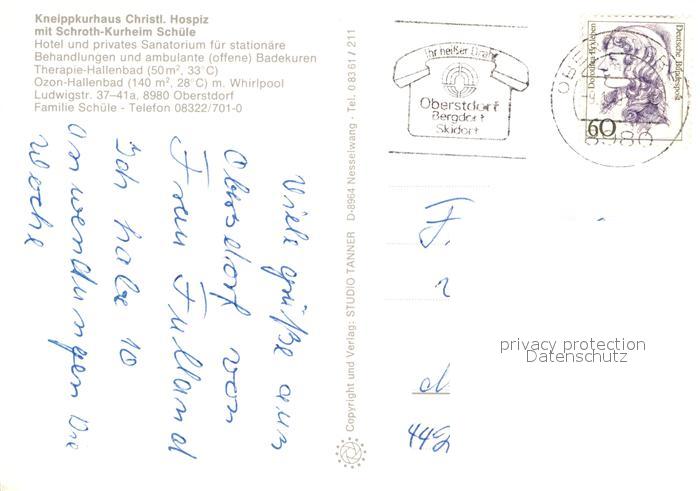 Kneippkurhaus Christl. Hospiz
mit Schroth-Kurheim Schüle
Hotel und privates Sanatorium für stationäre
Behandlungen und ambulante (offene) Badekuren
Therapie-Hallenbad (50 m², 33°C)
Ozon-Hallenbad (140 m², 28°C) m. Whirlpool
Ludwigstr. 37–41a, 8980 Oberstdorf
Familie Schüle - Telefon 08322/701-0
Viele grüße aun
Obersdorf von
Frau Fulland
Ich habe 10
Anwendungen Die
Woche
Copyright und Verlag: STUDIO TANNER D-8964 Nesselwang - Tel. 0 83 61 / 211
Ihr heißer Draht
Oberstdorf
Bergdorf
Skidorf
Dorothea Erxleben
Deutsche Bundespost
60
8980
F.
privacy protection
Datenschutz